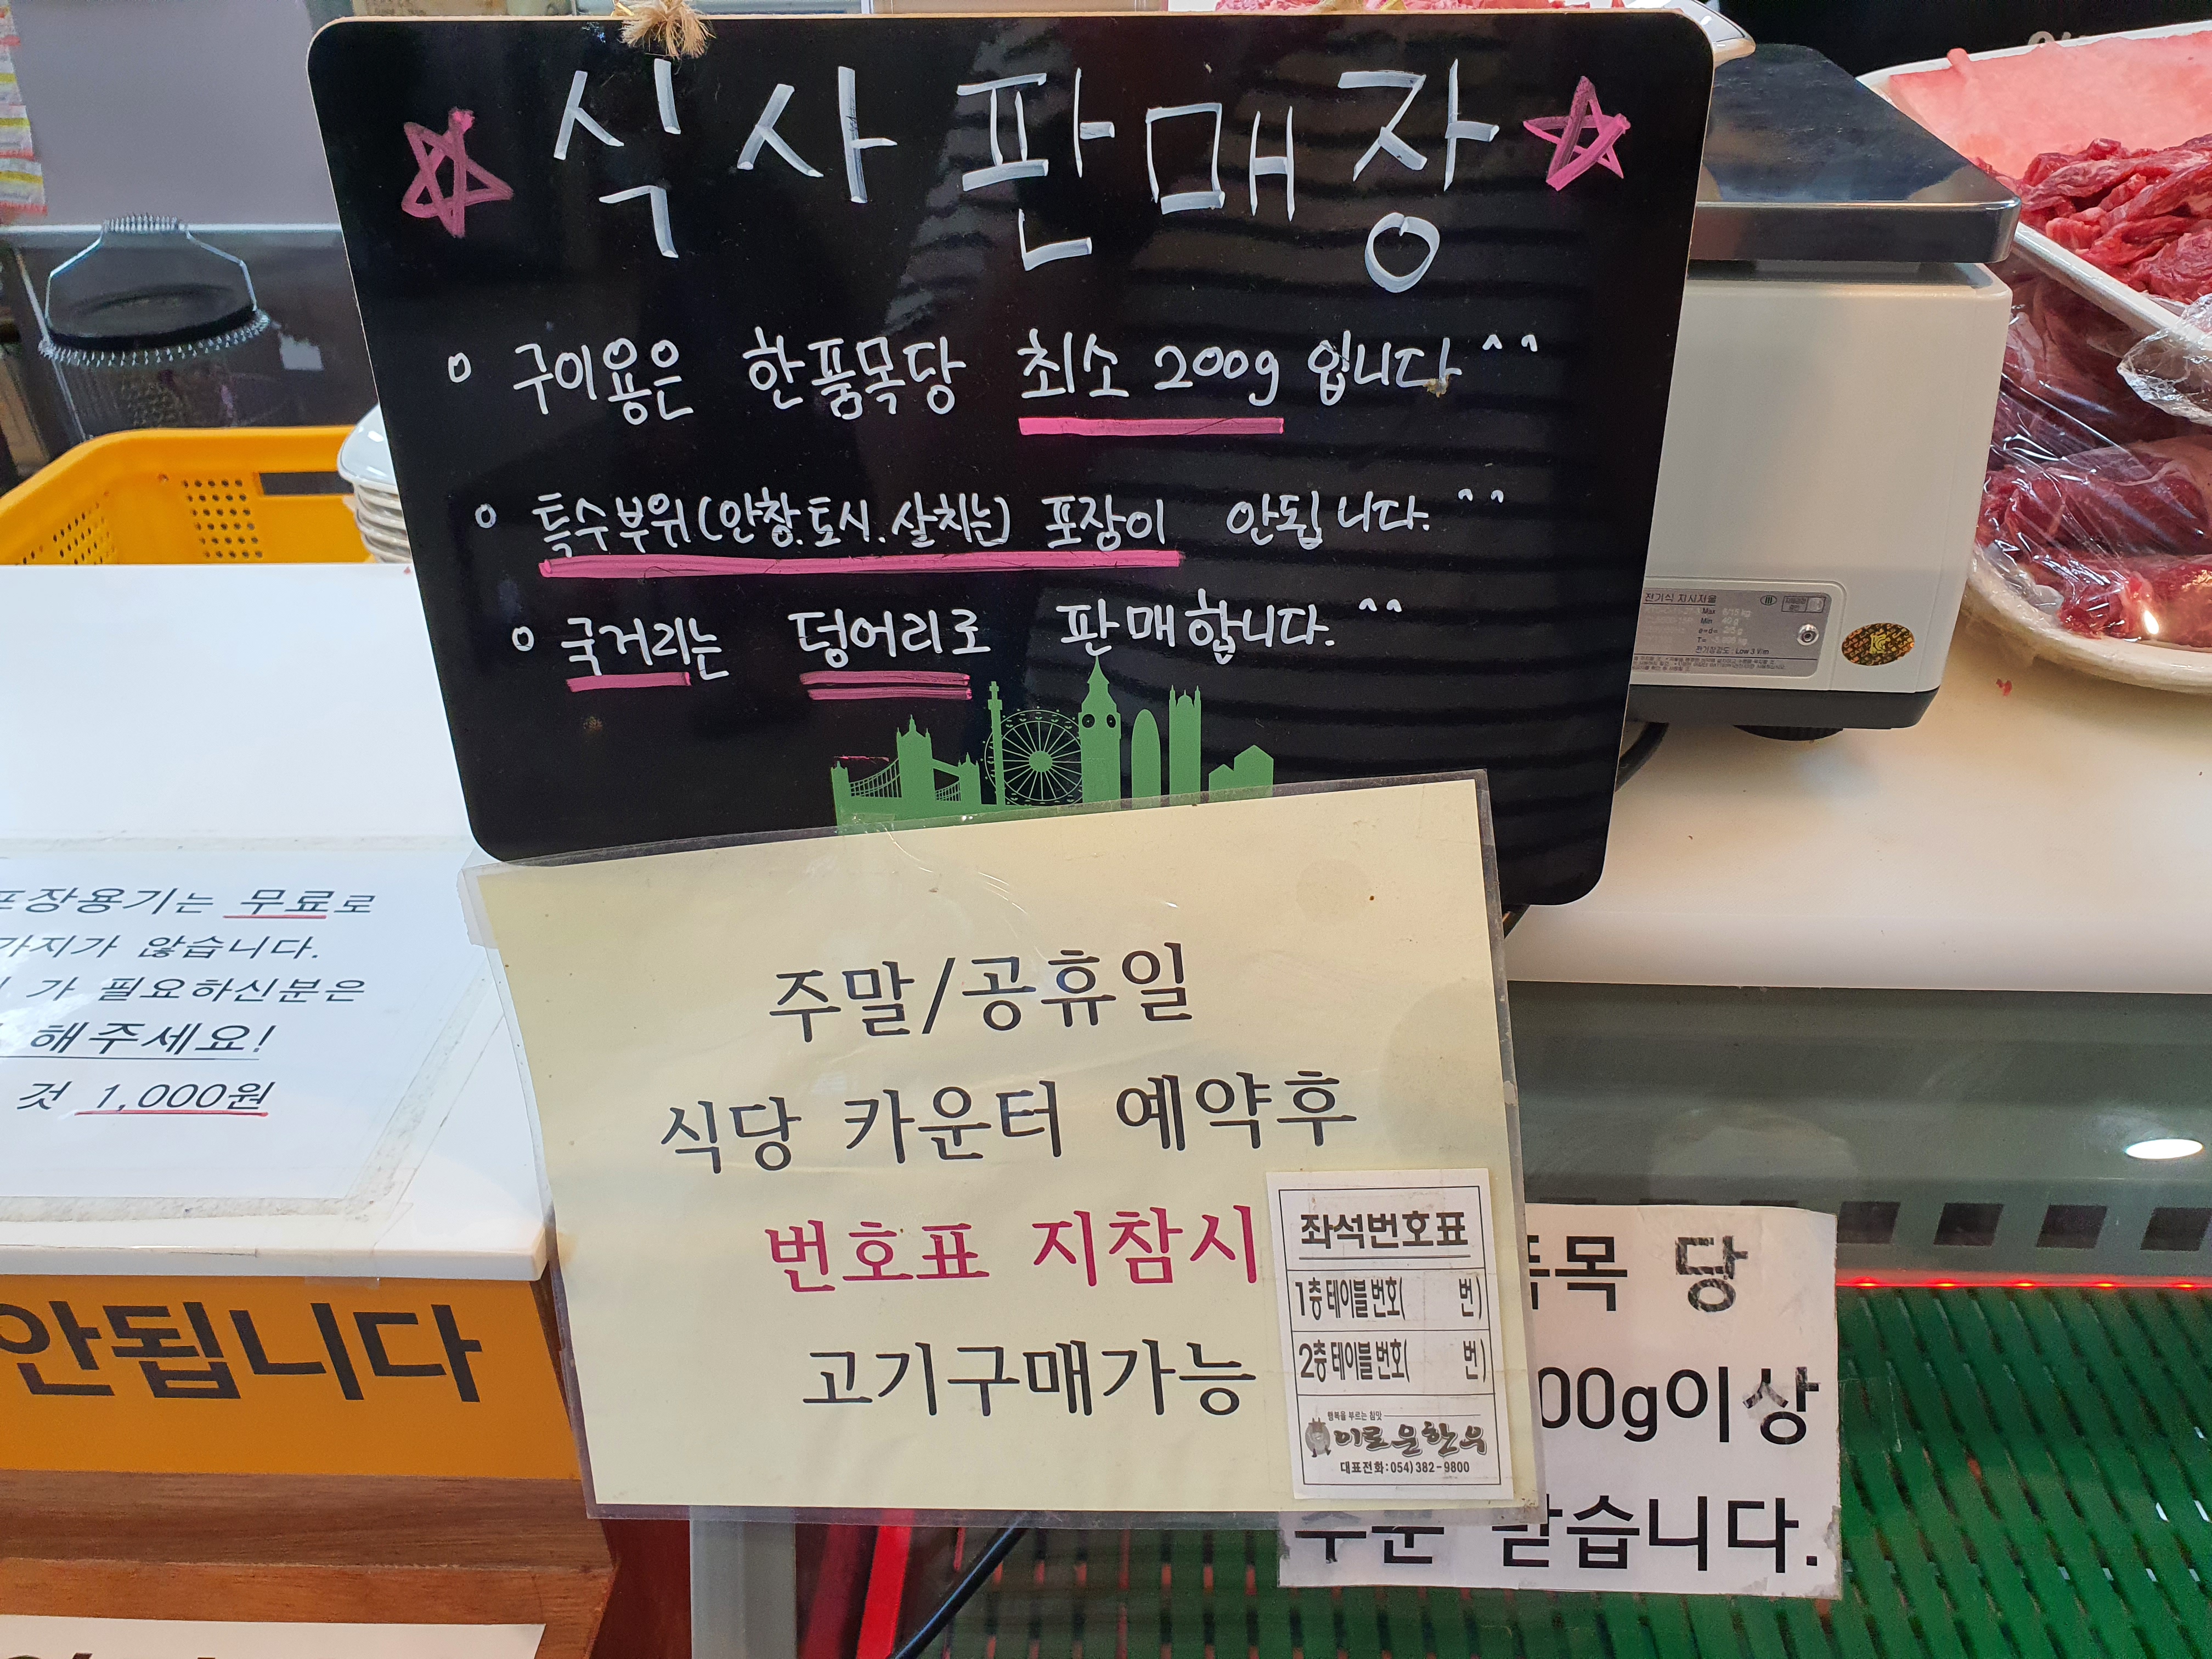 식사판매장
구이용은 한품목당 최소 200g 입니다^^
특수부위(안창.토시.살치는) 포장이 안됩니다.^^
국거리는 덩어리로 판매합니다.^^
전기식 지시저울
Max
Min
주말/공휴일
식당 카운터 예약후
번호표 지참시
고기구매가능
좌석번호표
1층 테이블 번호( 번)
2층 테이블 번호( 번)
행복을 부르는 참맛
이로운한우
대표전화:054)382-9800
포장용기는 무료로
가지가 않습니다.
가 필요하신분은
해주세요!
것 1,000원
안됩니다
품목 당
00g이상
주문 받습니다.